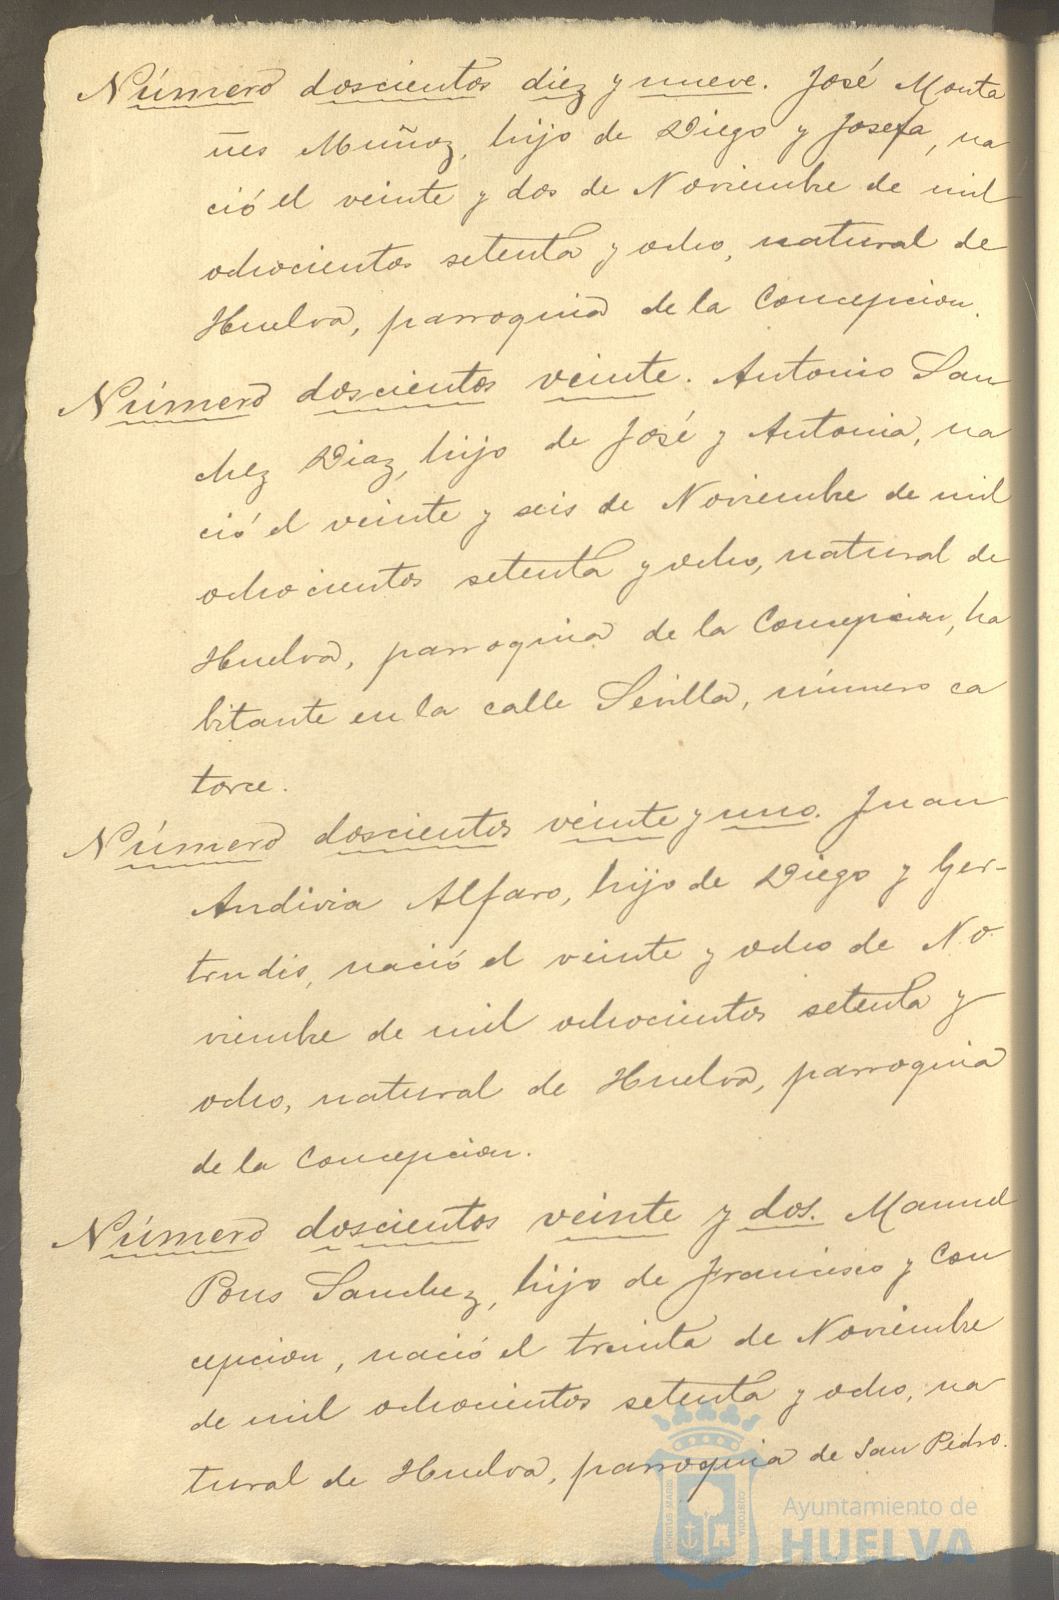 Número doscientos diez y nueve. José Monta
ñes Muñoz, hijo de Diego y Josefa, na
ció el veinte y dos de Noviembre de mil
ochocientos setenta y ocho, natural de
Huelva, parroquia de la Concepcion.
Número doscientos veinte. Antonio San
chez Diaz, hijo de José y Antonia, na
ció el veinte y seis de Noviembre de mil
ochocientos setenta y ocho, natural de
Huelva, parroquia de la Concepcion, ha
bitante en la calle Sevilla, número ca
torce.
Número doscientos veinte y uno. Juan
Andivia Alfaro, hijo de Diego y Ger-
trudis, nació el veinte y ocho de No
viembre de mil ochocientos setenta y
ocho, natural de Huelva, parroquia
de la Concepcion.
Número doscientos veinte y dos. Manuel
Pons Sanchez, hijo de Francisco y Con
cepcion, nació el treinta de Noviembre
de mil ochocientos setenta y ocho, na
tural de Huelva, parroquia de San Pedro.
PORTUS MARIS CUSTODIA
Ayuntamiento de
HUELVA